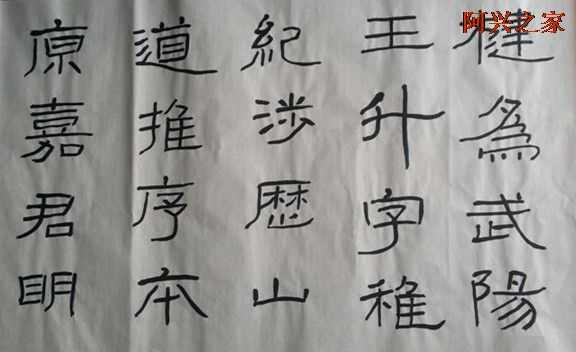 阿兴之家
健為武陽
王升字稚
紀涉歴山
道推序本
原嘉君明